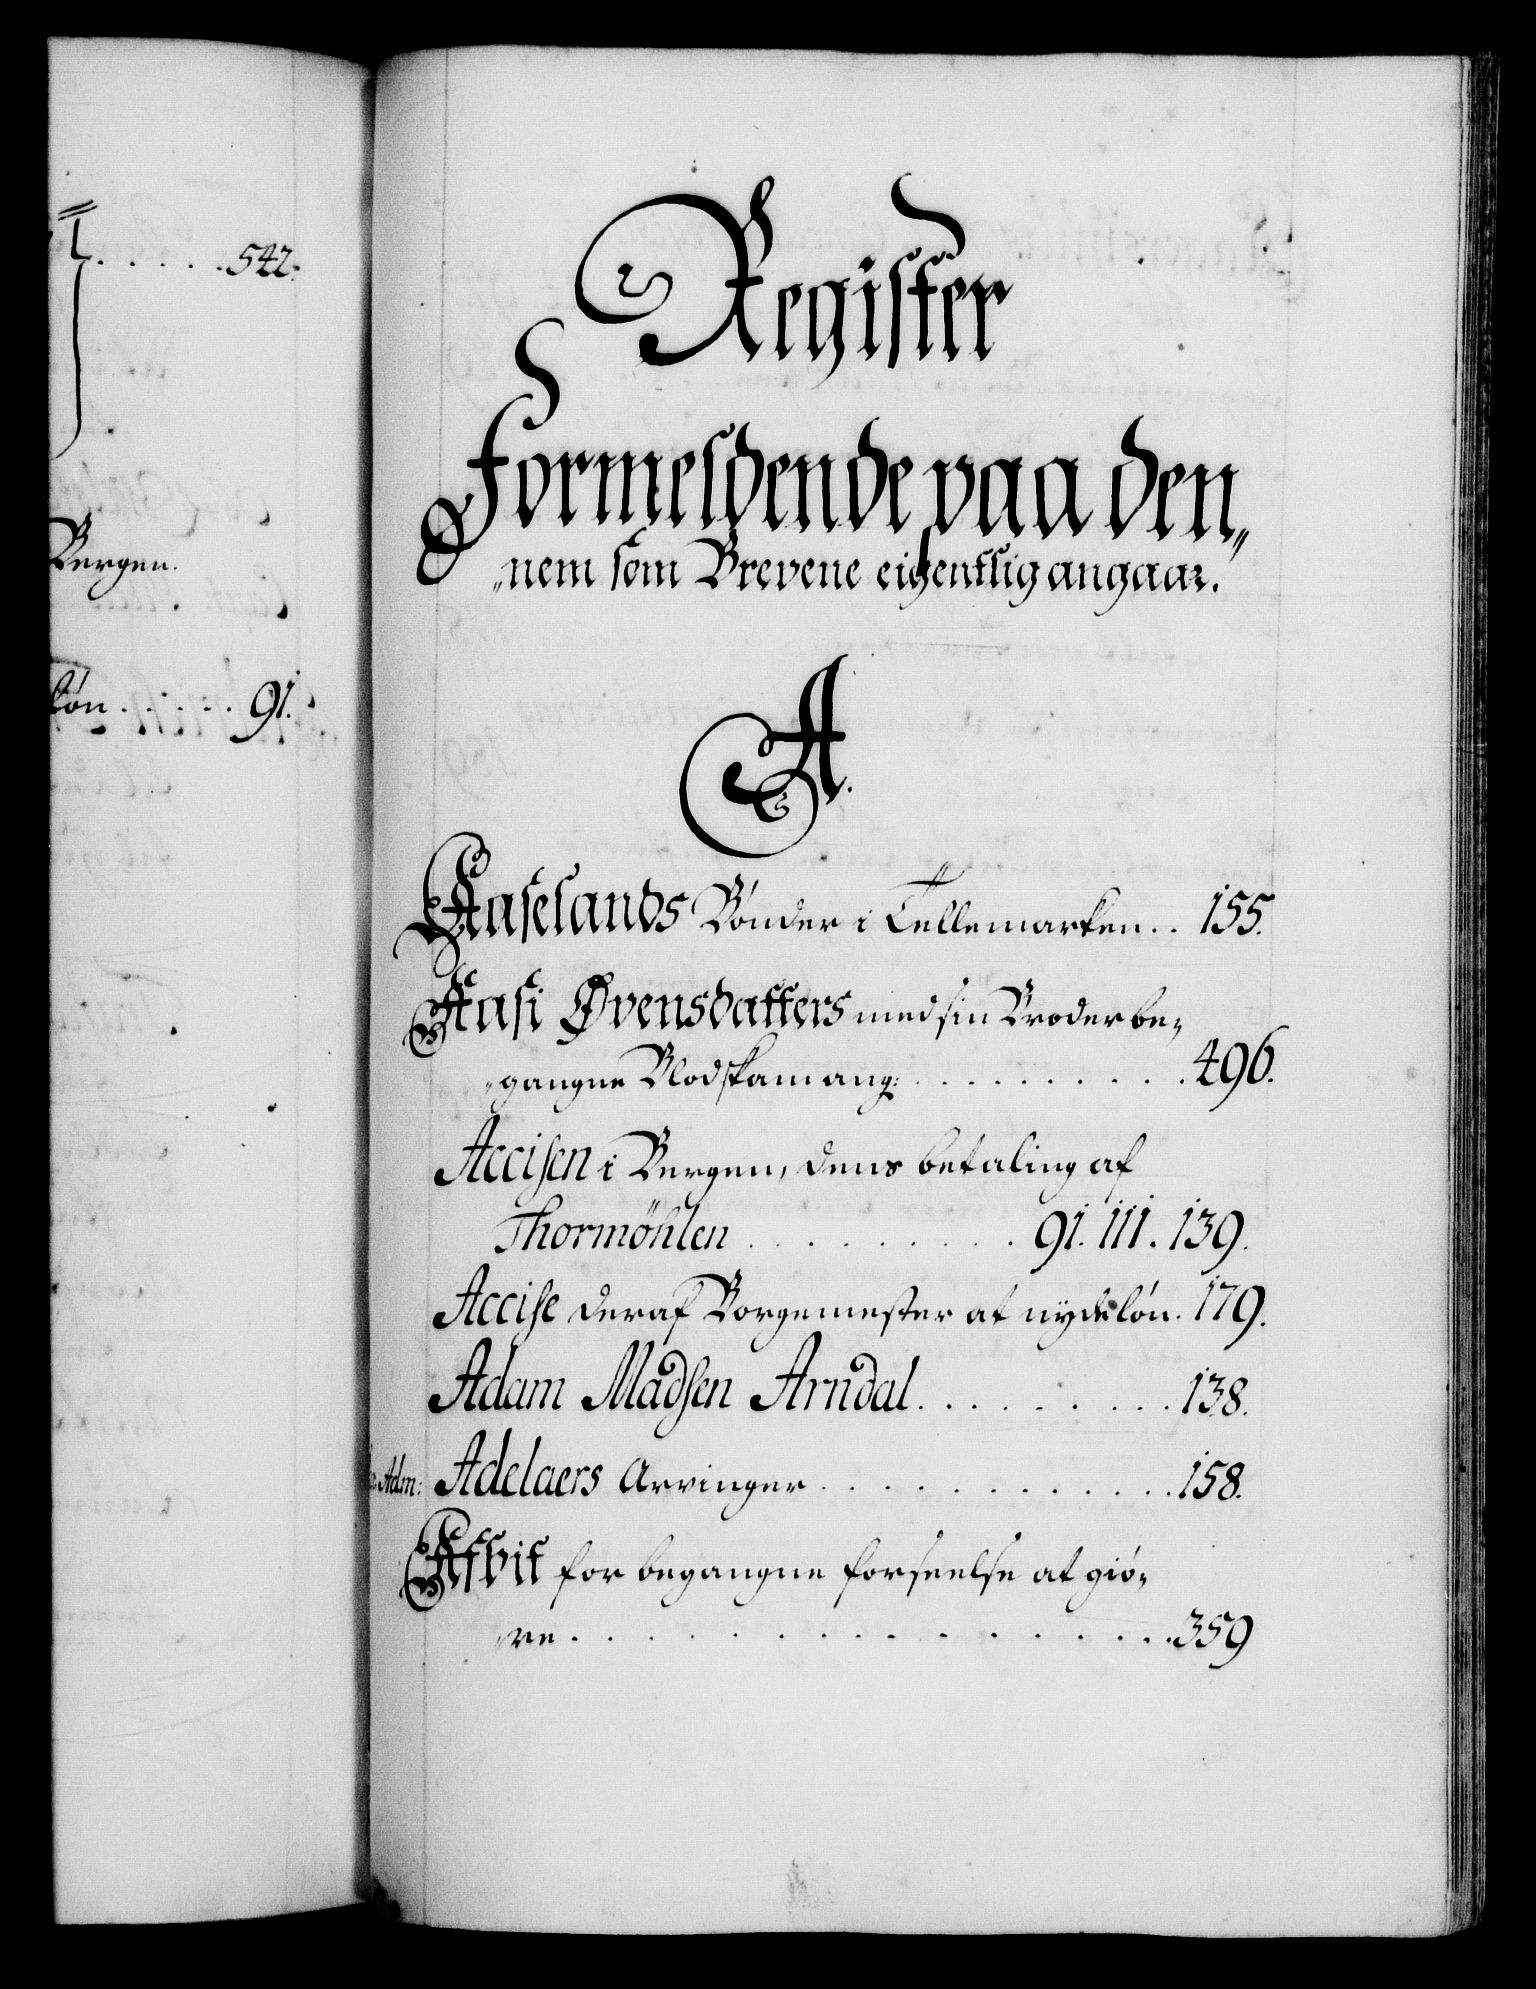 542.
Bergen.
løn . . . . . 91.
Register
Formeldende paa den„
„nem som Brevene eigentlig angaar.
A.
Aaselands Bønder i Tellemarken . . 155.
Aasi Øvensdatters med sin Broder be„
„gangne Blodskam ang: . . . . . . . . . . 496.
Accisen i Bergen, dens betaling af
Thormöhlen . . . . . . . . . 91. 111. 139.
Accise deraf Borgemester at nyde løn. 179.
Adam Madsen Arndal . . . . . . . . . 138.
Adm: Adelaers Arvinger . . . . . . . . . . . . 158.
Afbit for begangne forseelse at giö„
„re . . . . . . . . . . . . . . . 359